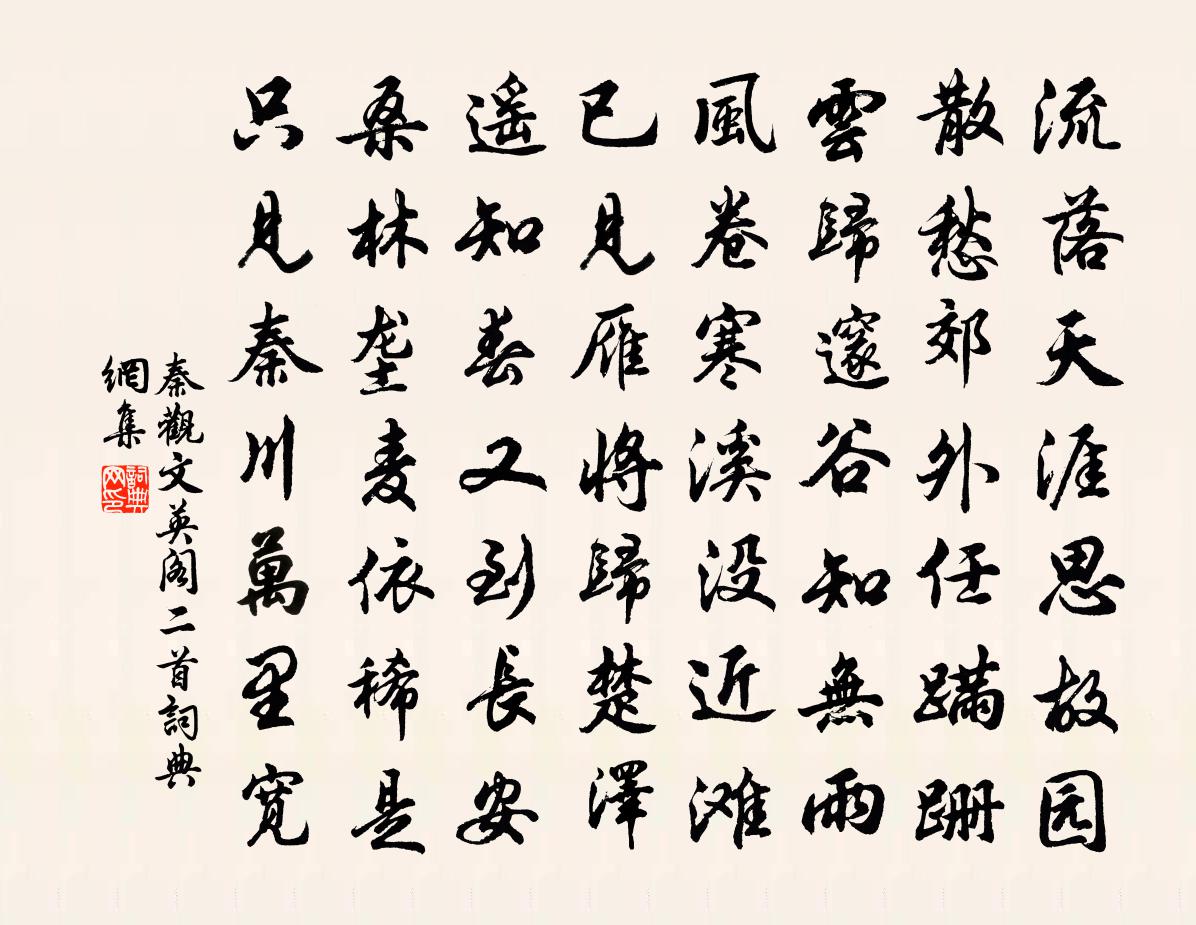 流落天涯思故园
散愁郊外任蹒跚
雲歸邃谷知無雨
風卷寒溪没近滩
已見雁將歸楚澤
遥知春又到長安
桑林垄麦依稀是
只見秦川萬里寬
秦觀文英阁二首詞典
網集
詞典网印